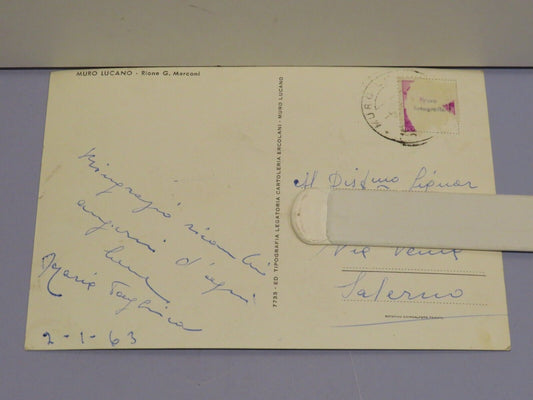 MURO LUCANO - Rione G. Marconi
Ringrazio ricambio
auguri d'ogni
bene
Maria
2-1-63
7733 - ED. TIPOGRAFIA LEGATORIA CARTOLERIA ERCOLANI - MURO LUCANO
MURO
Al Dist.mo Signor
Via
Salerno